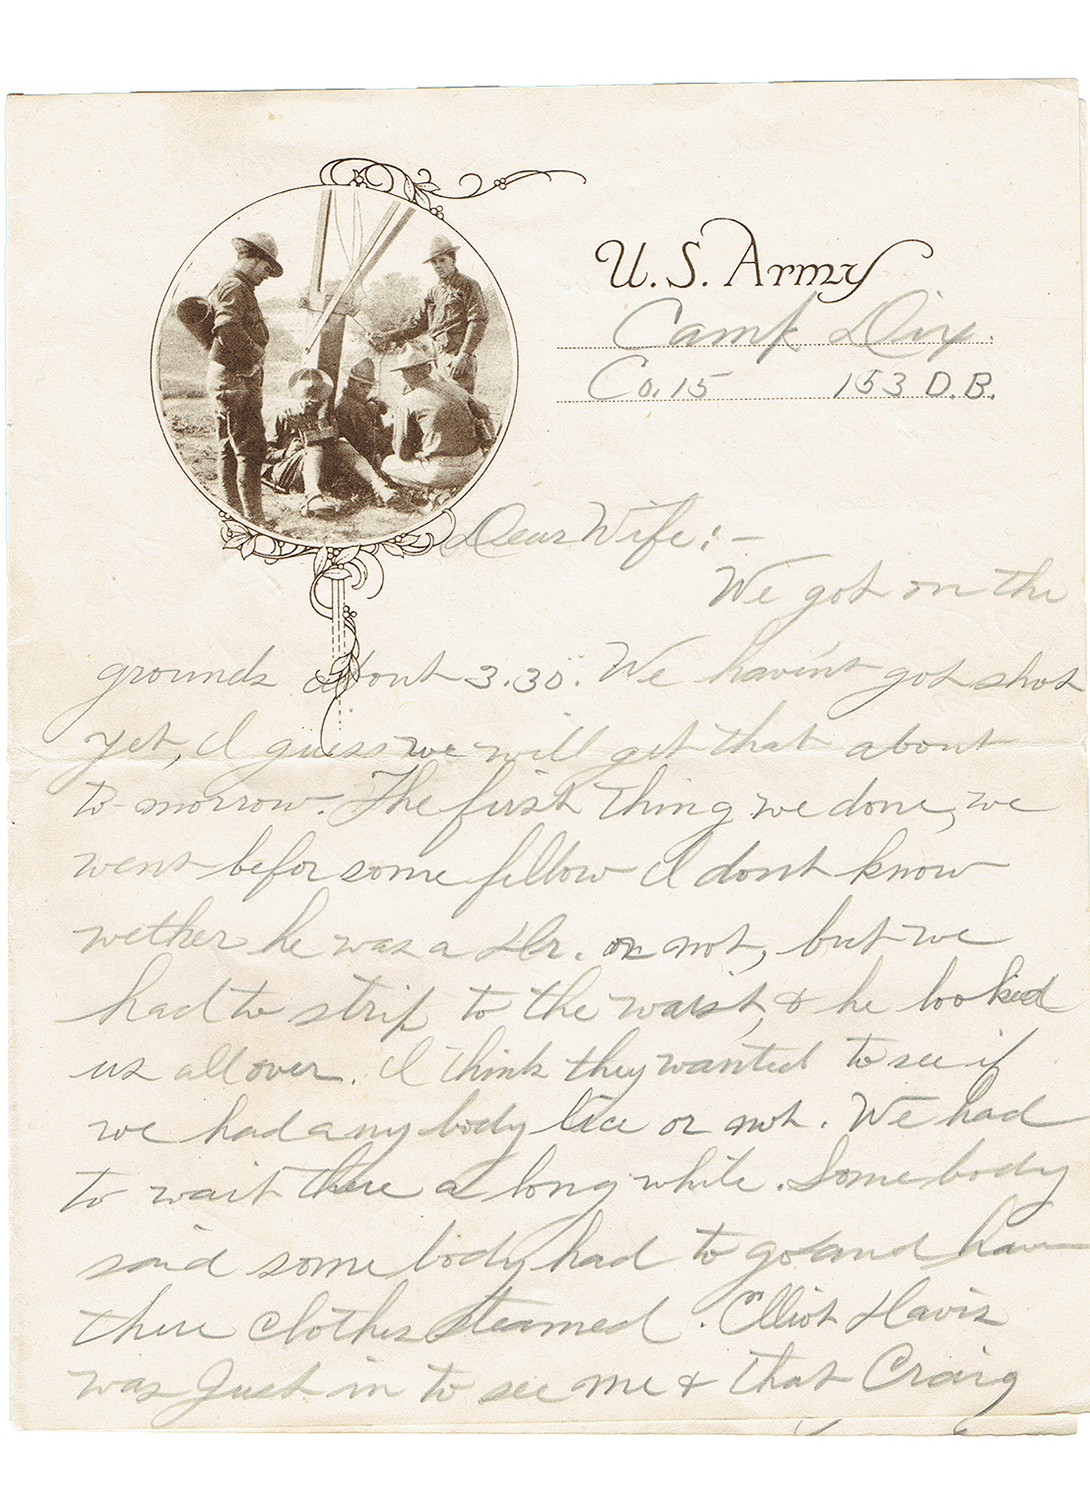 U.S. Army
Camp Dix.
Co. 15 153 D.B.
Dear Wife:-
We got on the
grounds about 3.30. We havin't got shot
yet, I guess we will get that about
to-morrow. The first thing we done, we
went befor some fellow I dont know
wether he was a Dr. or not, but we
had to strip to the waist, & he looked
us all over. I think they wanted to see if
we had any body lice or not. We had
to wait there a long while. Some body
said some body had to go and have
there clothes steamed. Elliot Davis
was just in to see me & that Craig